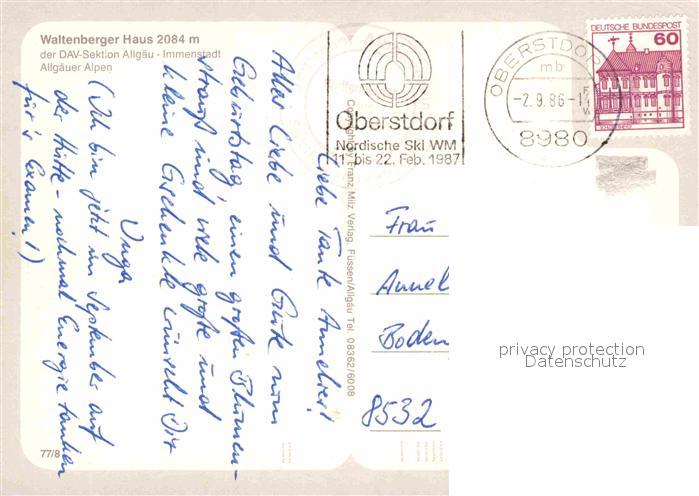 Waltenberger Haus 2084 m
der DAV-Sektion Allgäu - Immenstadt
Allgäuer Alpen
Oberstdorf
Nordische Ski WM
11. bis 22. Feb. 1987
OBERSTDORF
mb
-2.9.86-1
8980
DEUTSCHE BUNDESPOST
60
Liebe Tante Annelies!
Alles Liebe und Gute zum
Geburtstag, einen großen Blumen-
strauß und viele große und
kleine Geschenke wünscht Dir
Inga
(Ich bin jetzt im September auf
der Hütte - nochmal Energie tanken
für's Examen!)
Franz Milz Verlag, Füssen/Allgäu Tel. 08362/6008
Frau
Annel
Boden
8532
privacy protection
Datenschutz
77/8